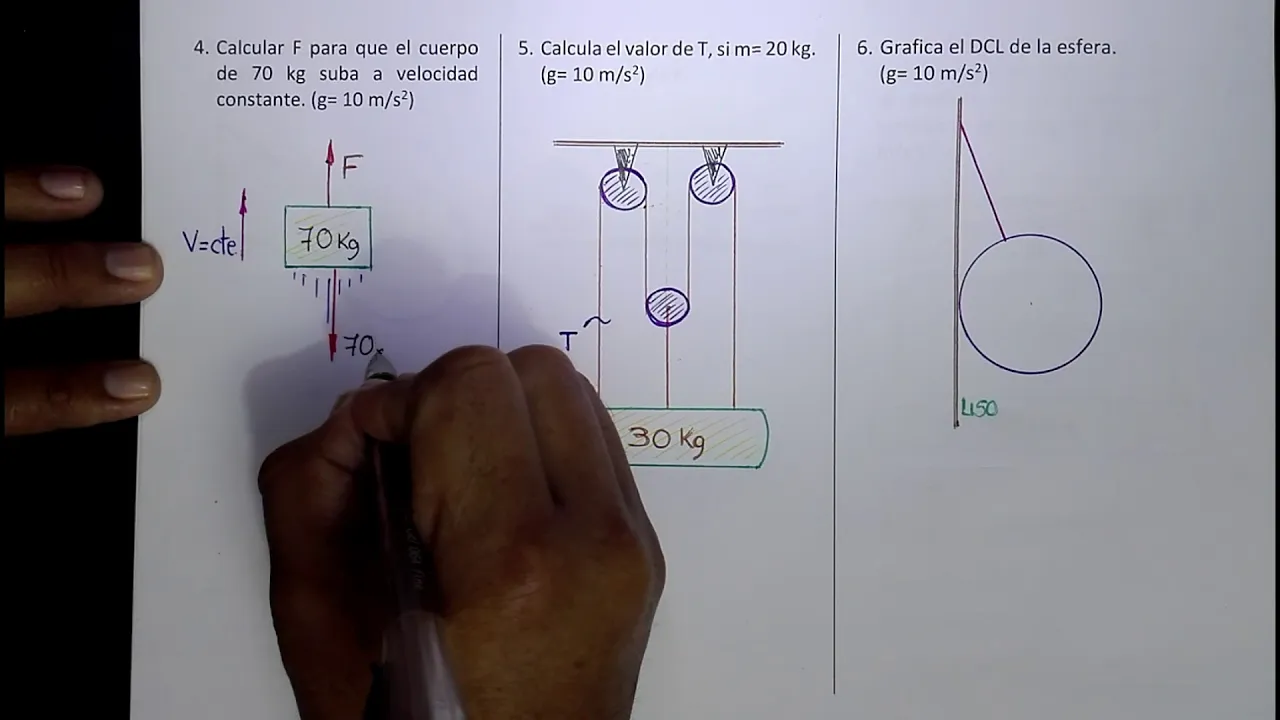 4. Calcular F para que el cuerpo
de 70 kg suba a velocidad
constante. (g= 10 m/s²)
F
V=cte
70 Kg
70x
5. Calcula el valor de T, si m= 20 kg.
(g= 10 m/s²)
T
30 Kg
6. Grafica el DCL de la esfera.
(g= 10 m/s²)